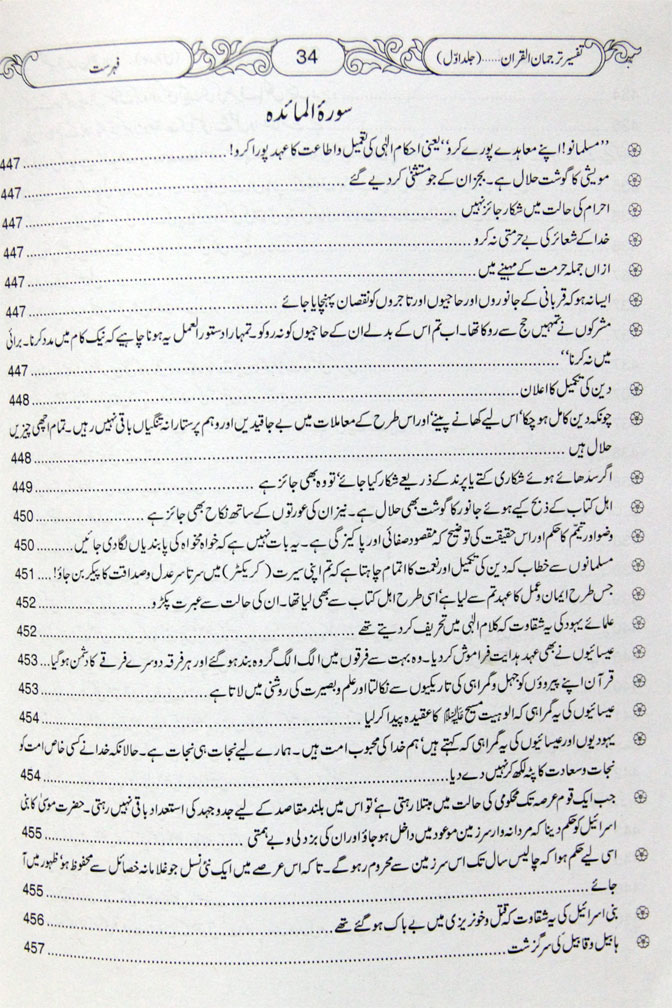 تفسیر ترجمان القرآن......(جلد اوّل)
34
فہرست
سورۃ المائدہ
’’مسلمانو! اپنے معاہدے پورے کرو‘‘ یعنی احکام الٰہی کی تعمیل و اطاعت کا عہد پورا کرو! ........ 447
مویشی کا گوشت حلال ہے۔ بجز ان کے جو مستثنیٰ کر دیے گئے ........ 447
احرام کی حالت میں شکار جائز نہیں ........ 447
خدا کے شعائر کی بے حرمتی نہ کرو ........ 447
ازاں جملہ حرمت کے مہینے میں ........ 447
ایسا نہ ہو کہ قربانی کے جانوروں اور حاجیوں اور تاجروں کو نقصان پہنچایا جائے ........ 447
مشرکوں نے تمہیں حج سے روکا تھا۔ اب تم اس کے بدلے ان کے حاجیوں کو نہ روکو۔ تمہارا دستور العمل یہ ہونا چاہیے کہ نیک کام میں مدد کرنا۔ برائی
میں نہ کرنا‘‘ ........ 447
دین کی تکمیل کا اعلان ........ 448
چونکہ دین کامل ہو چکا‘ اس لیے کھانے پینے‘ اور اس طرح کے معاملات میں بے جا قیدیں اور وہم پرستارانہ تنگیاں باقی نہیں رہیں۔ تمام اچھی چیزیں
حلال ہیں ........ 448
اگر سدھائے ہوئے شکاری کتے یا پرند کے ذریعے شکار کیا جائے‘ تو وہ بھی جائز ہے ........ 449
اہل کتاب کے ذبح کیے ہوئے جانور کا گوشت بھی حلال ہے۔ نیز ان کی عورتوں کے ساتھ نکاح بھی جائز ہے ........ 450
وضو اور تیمّم کا حکم اور اس حقیقت کی توضیح کہ مقصود صفائی اور پاکیزگی ہے۔ یہ بات نہیں ہے کہ خواہ مخواہ کی پابندیاں لگا دی جائیں ........ 450
مسلمانوں سے خطاب کہ دین کی تکمیل اور نعمت کا اتمام چاہتا ہے کہ تم اپنی سیرت (کریکٹر) میں سرتاسر عدل و صداقت کا پیکر بن جاؤ! .... 451
جس طرح ایمان و عمل کا عہد تم سے لیا ہے‘ اسی طرح اہل کتاب سے بھی لیا تھا۔ ان کی حالت سے عبرت پکڑو ........ 452
علمائے یہود کی یہ شقاوت کہ کلام الٰہی میں تحریف کر دیتے تھے ........ 452
عیسائیوں نے بھی عہد ہدایت فراموش کر دیا۔ وہ بہت سے فرقوں میں الگ الگ گروہ بند ہو گئے اور ہر فرقہ دوسرے فرقے کا دشمن ہو گیا ... 453
قرآن اپنے پیرووں کو جہل و گمراہی کی تاریکیوں سے نکالتا اور علم و بصیرت کی روشنی میں لاتا ہے ........ 453
عیسائیوں کی یہ گمراہی کہ الوہیت مسیح علیہ السلام کا عقیدہ پیدا کر لیا ........ 454
یہودیوں اور عیسائیوں کی یہ گمراہی کہ کہتے ہیں‘ ہم خدا کی محبوب امت ہیں۔ ہمارے لیے نجات ہی نجات ہے۔ حالانکہ خدا نے کسی خاص امت کو
نجات و سعادت کا پٹہ لکھ کر نہیں دے دیا ........ 454
جب ایک قوم عرصہ تک محکومی کی حالت میں مبتلا رہتی ہے‘ تو اس میں بلند مقاصد کے لیے جدوجہد کی استعداد باقی نہیں رہتی۔ حضرت موسیٰ کا بنی
اسرائیل کو حکم دینا کہ مردانہ وار سرزمین موعود میں داخل ہو جاؤ اور ان کی بزدلی و بے ہمتی ........ 455
اسی لیے حکم ہوا کہ چالیس سال تک اس سرزمین سے محروم رہو گے۔ تاکہ اس عرصے میں ایک نئی نسل جو غلامانہ خصائل سے محفوظ ہو‘ ظہور میں آ
جائے ........ 455
بنی اسرائیل کی یہ شقاوت کہ قتل و خونریزی میں بے باک ہو گئے تھے ........ 456
ہابیل و قابیل کی سرگزشت ........ 457